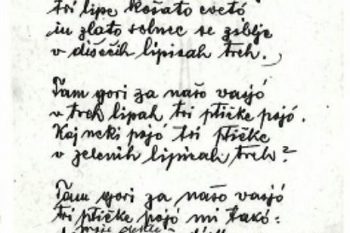 tri lipe košato cvetó
in zlato solnce se ziblje
v dišečih lipicah treh.
Tam gori za našo vasjó
v treh lipah tri ptičke pojó.
Kaj neki pojo tri ptičke
v zelenih lipicah treh?
Tam gori za našo vasjó
tri ptičke pojo mi takó: